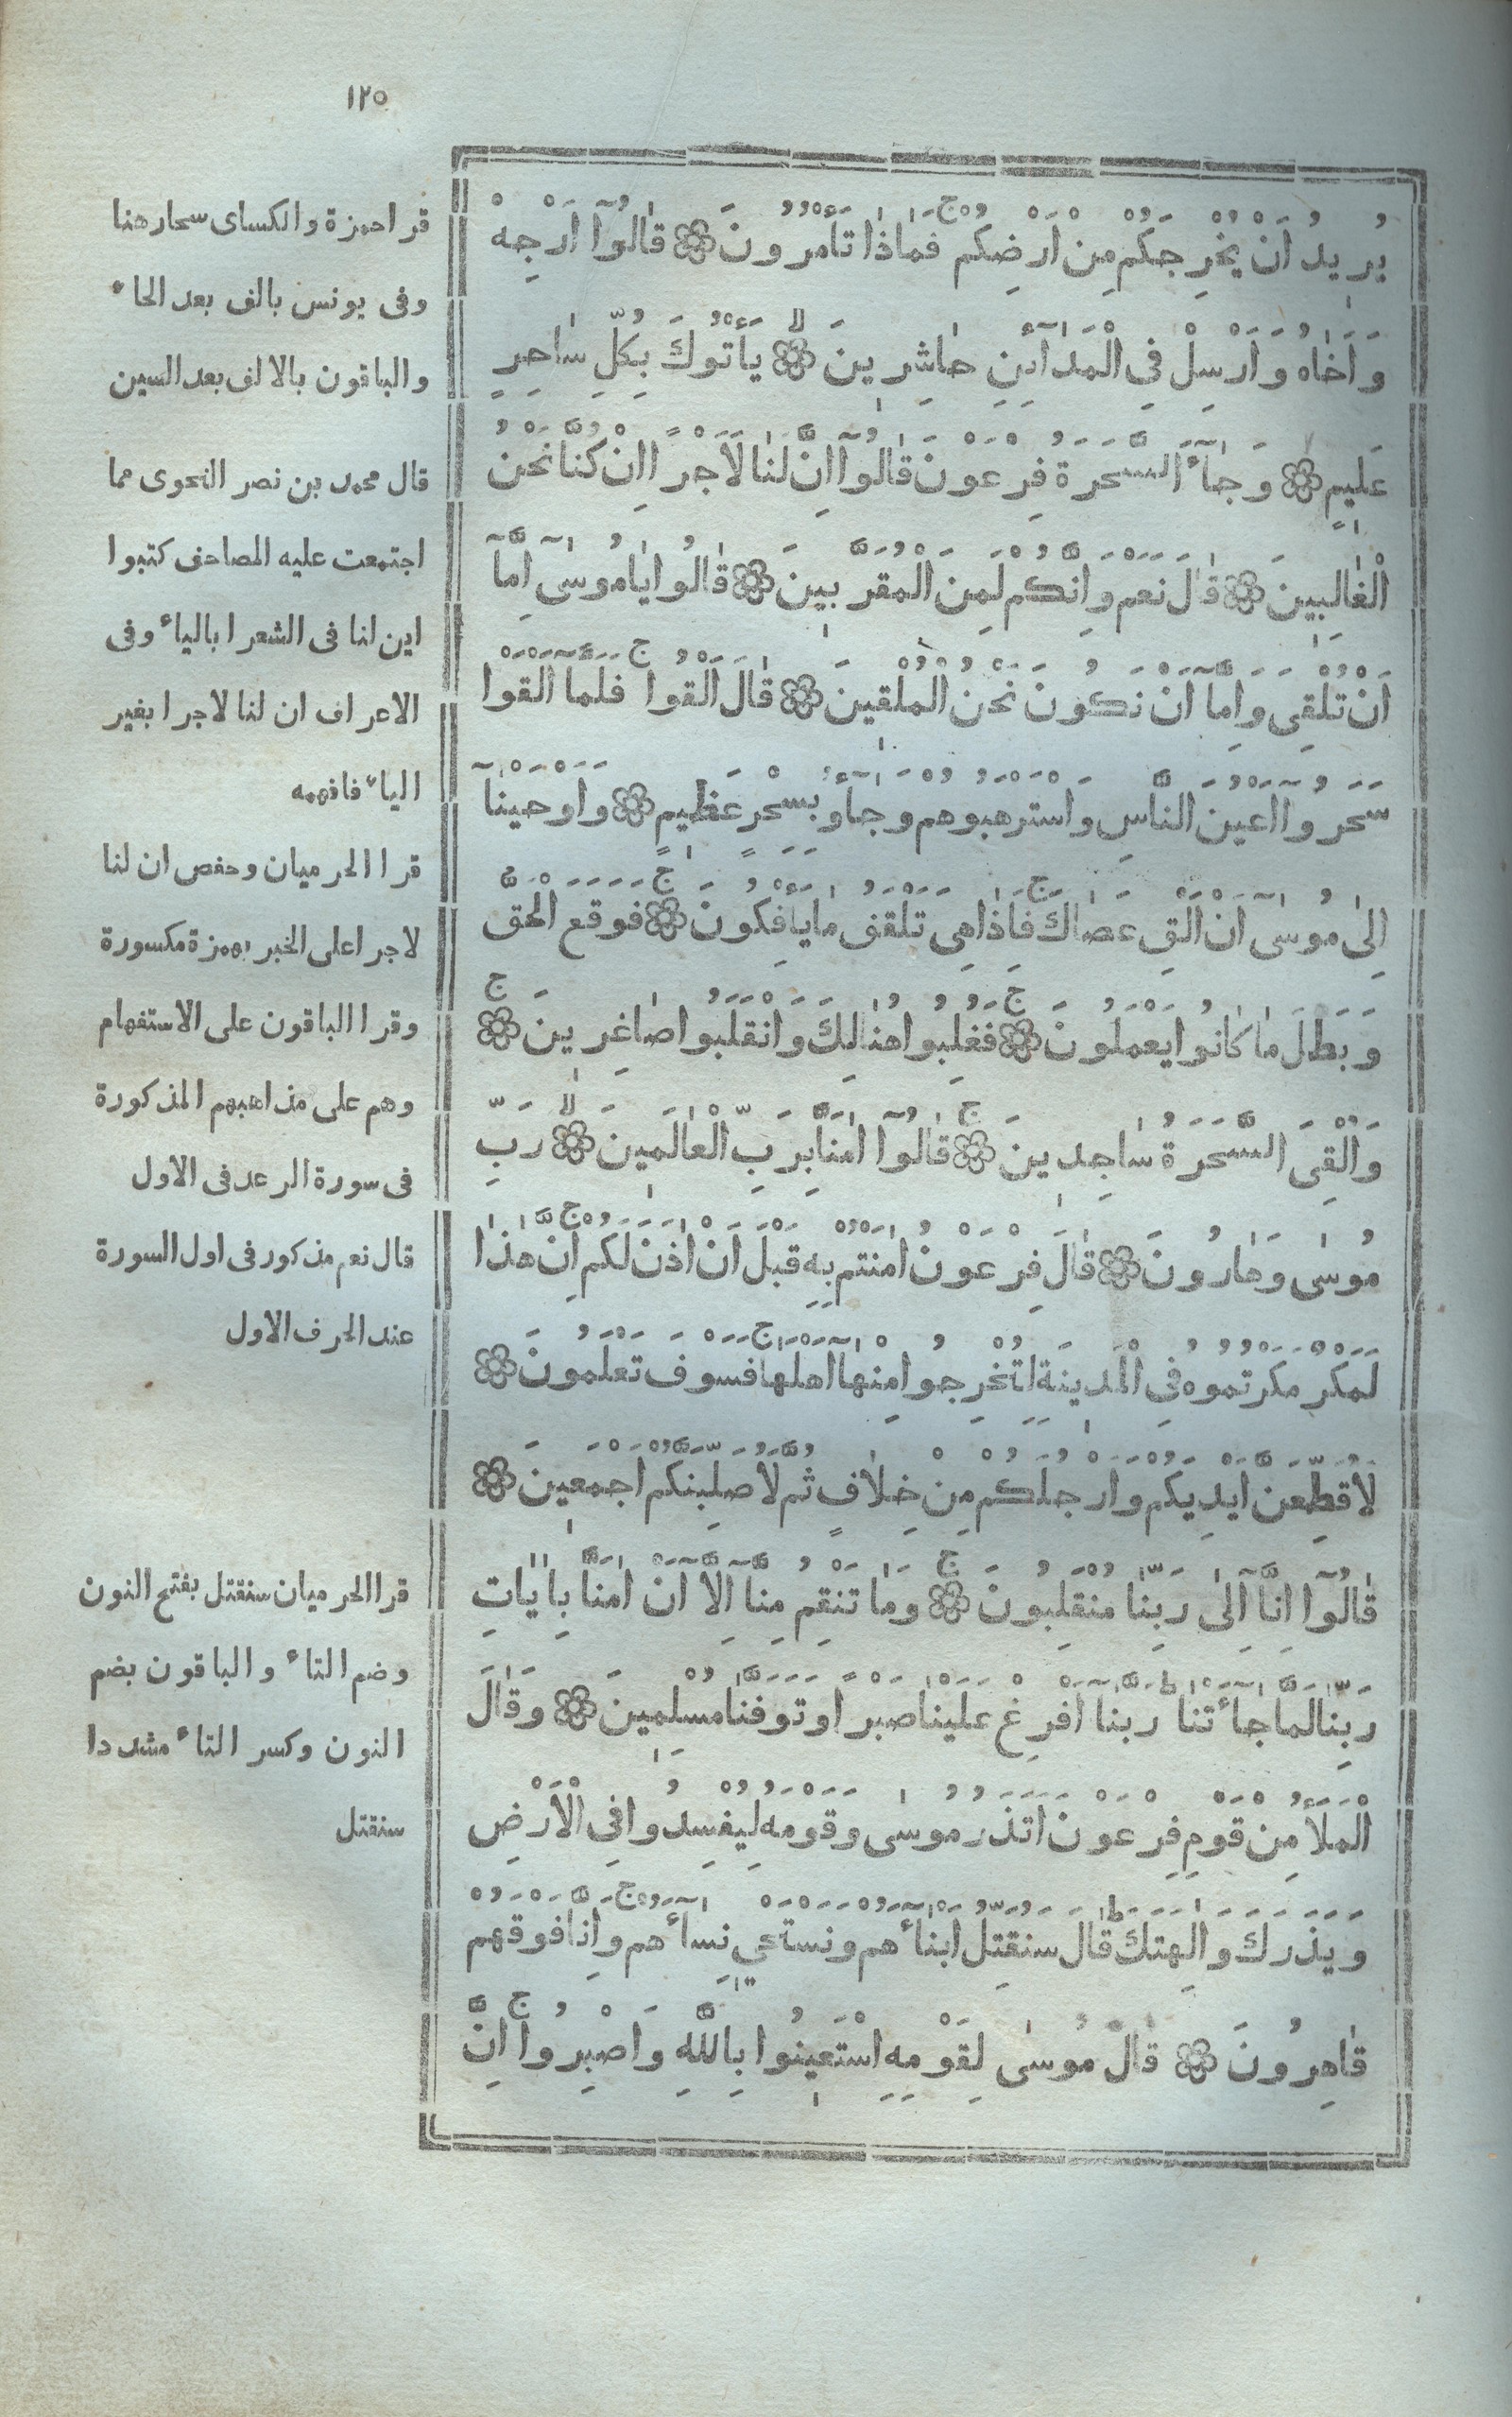 ١٢٥
يُرِيدُ اَنْ يُخْرِجَكُمْ مِنْ اَرْضِكُمْ ج فَمَاذَا تَأْمُرُونَ ۞ قَالُوٓا اَرْجِهْ
وَاَخَاهُ وَاَرْسِلْ فِى الْمَدَآئِنِ حَاشِرِينَ ۞ لا يَأْتُوكَ بِكُلِّ سَاحِرٍ
عَلِيمٍ ۞ وَجَآءَ السَّحَرَةُ فِرْعَوْنَ قَالُوٓا اِنَّ لَنَا لَاَجْرًا اِنْ كُنَّا نَحْنُ
الْغَالِبِينَ ۞ قَالَ نَعَمْ وَاِنَّكُمْ لَمِنَ الْمُقَرَّبِينَ ۞ قَالُوا يَامُوسٰٓى اِمَّآ
اَنْ تُلْقِىَ وَاِمَّآ اَنْ نَكُونَ نَحْنُ الْمُلْقِينَ ۞ قَالَ اَلْقُوا ج فَلَمَّآ اَلْقَوْا
سَحَرُوٓا اَعْيُنَ النَّاسِ وَاسْتَرْهَبُوهُمْ وَجَآؤُ بِسِحْرٍ عَظِيمٍ ۞ وَاَوْحَيْنَآ
اِلٰى مُوسٰٓى اَنْ اَلْقِ عَصَاكَ ج فَاِذَا هِىَ تَلْقَفُ مَا يَأْفِكُونَ ۞ ج فَوَقَعَ الْحَقُّ
وَبَطَلَ مَا كَانُوا يَعْمَلُونَ ۞ ج فَغُلِبُوا هُنَالِكَ وَانْقَلَبُوا صَاغِرِينَ ۞ ج
وَاُلْقِىَ السَّحَرَةُ سَاجِدِينَ ۞ ج قَالُوٓا اٰمَنَّا بِرَبِّ الْعَالَمِينَ ۞ لا رَبِّ
مُوسٰى وَهَارُونَ ۞ قَالَ فِرْعَوْنُ اٰمَنْتُمْ بِهِ قَبْلَ اَنْ اٰذَنَ لَكُمْ ج اِنَّ هٰذَا
لَمَكْرٌ مَكَرْتُمُوهُ فِى الْمَدِينَةِ لِتُخْرِجُوا مِنْهَآ اَهْلَهَا ج فَسَوْفَ تَعْلَمُونَ ۞
لَاُقَطِّعَنَّ اَيْدِيَكُمْ وَاَرْجُلَكُمْ مِنْ خِلَافٍ ثُمَّ لَاُصَلِّبَنَّكُمْ اَجْمَعِينَ ۞
قَالُوٓا اِنَّآ اِلٰى رَبِّنَا مُنْقَلِبُونَ ۞ ج وَمَا تَنْقِمُ مِنَّآ اِلَّآ اَنْ اٰمَنَّا بِاٰيَاتِ
رَبِّنَا لَمَّا جَآءَتْنَا ط رَبَّنَآ اَفْرِغْ عَلَيْنَا صَبْرًا وَتَوَفَّنَا مُسْلِمِينَ ۞ وَقَالَ
الْمَلَأُ مِنْ قَوْمِ فِرْعَوْنَ اَتَذَرُ مُوسٰى وَقَوْمَهُ لِيُفْسِدُوا فِى الْاَرْضِ
وَيَذَرَكَ وَاٰلِهَتَكَ ط قَالَ سَنُقَتِّلُ اَبْنَآءَهُمْ وَنَسْتَحْيِى نِسَآءَهُمْ ج وَاِنَّا فَوْقَهُمْ
قَاهِرُونَ ۞ قَالَ مُوسٰى لِقَوْمِهِ اسْتَعِينُوا بِاللّٰهِ وَاصْبِرُوا ج اِنَّ
قرا حمزة والكساى سحار هنا
وفى يونس بالف بعد الحاء
والباقون بالالف بعد السين
قال محمد بن نصر النحوى مما
اجتمعت عليه المصاحف كتبوا
اين لنا فى الشعرا بالياء وفى
الاعراف ان لنا لاجرا بغير
الياء فافهمه
قرا الحرميان وحفص ان لنا
لاجرا على الخبر بهمزة مكسورة
وقرا الباقون على الاستفهام
وهم على مذاهبهم المذكورة
فى سورة الرعد فى الاول
قال نعم مذكور فى اول السورة
عند الحرف الاول
قرا الحرميان سنقتل بفتح النون
وضم التاء والباقون بضم
النون وكسر التاء مشددا
سنقتل